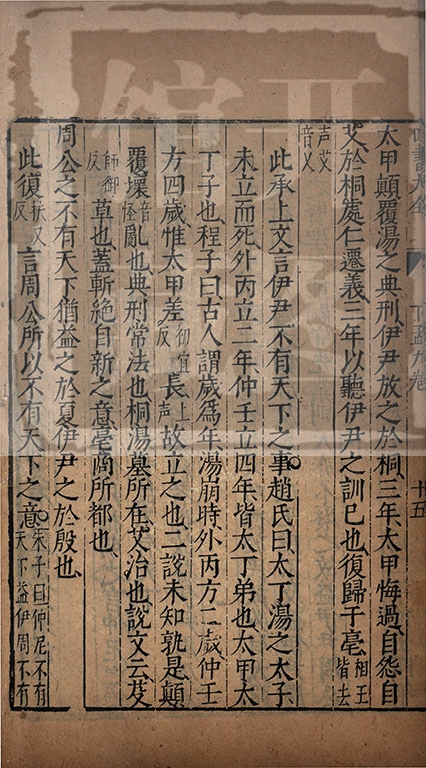 太甲顛覆湯之典刑伊尹放之於桐三年太甲悔過自怨自
艾於桐處仁遷義三年以聽伊尹之訓己也復歸于亳相王皆去
声艾音乂
此承上文言伊尹不有天下之事趙氏曰太丁湯之太子
未立而死外丙立二年仲壬立四年皆太丁弟也太甲太
丁子也程子曰古人謂歲為年湯崩時外丙方二歲仲壬
方四歲惟太甲差初宜反長上声故立之也二說未知孰是顛
覆壞音怪亂也典刑常法也桐湯墓所在艾治也說文云芟
師銜反草也蓋斬絕自新之意亳商所都也
周公之不有天下猶益之於夏伊尹之於殷也
此復扶又反言周公所以不有天下之意朱子曰仲尼不有天下益伊周不有